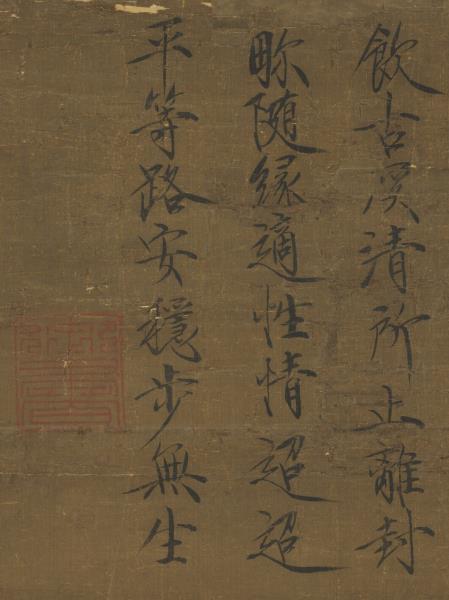 飲古溪清所止離封
畛随緣適性情迢迢
平等路安穩步無生